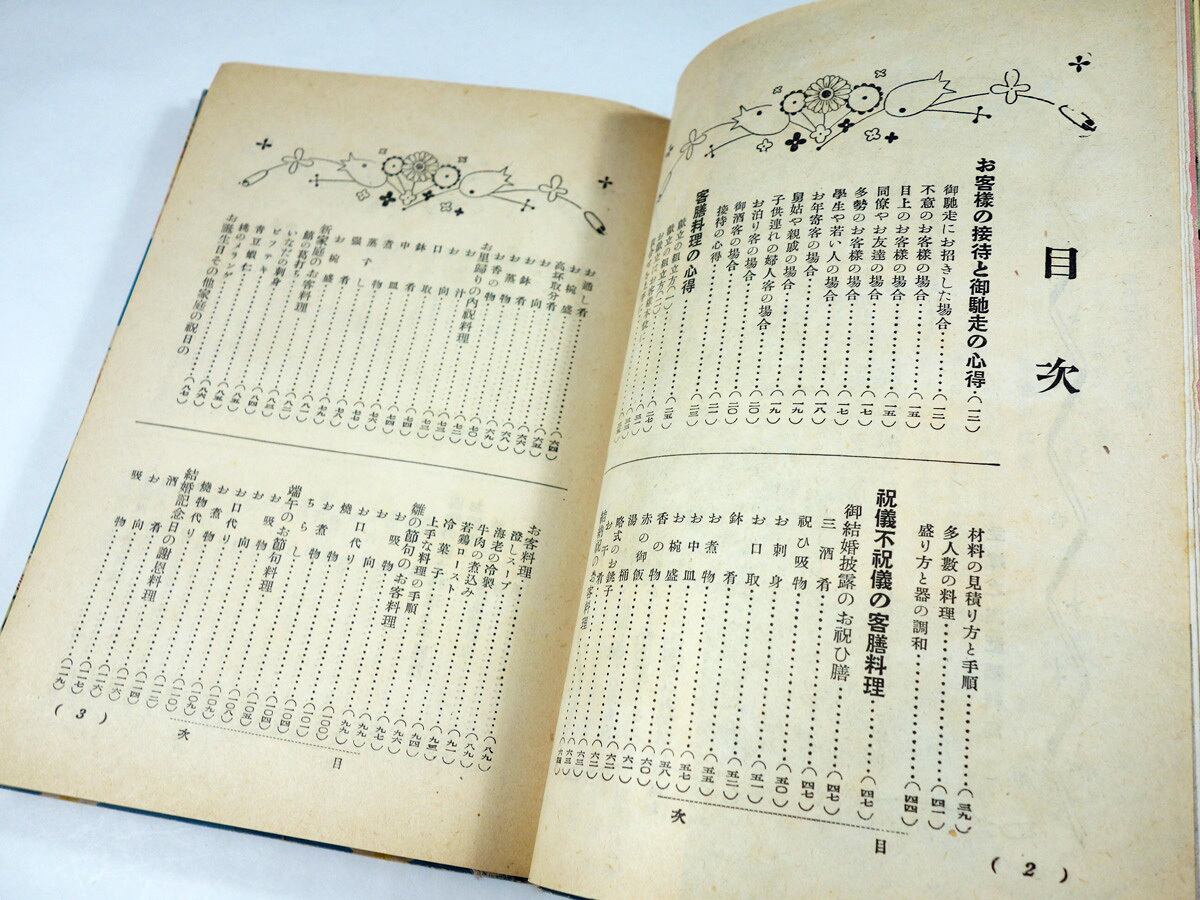 目次
お客樣の接待と御馳走の心得・(一二)
御馳走にお招きした場合(一二)
不意のお客樣の場合(一五)
目上のお客樣の場合(一五)
同僚やお友達の場合(一五)
多勢のお客樣の場合(一七)
學生や若い人の場合(一七)
お年寄客の場合(一八)
舅姑や親戚の場合(一九)
子供連れの婦人客の場合(一九)
お泊り客の場合(二〇)
御酒客の場合(二〇)
接待の心得(二一)
客膳料理の心得(二三)
獻立の組立方(一)(二五)
材料の見積り方と手順(三九)
多人數の料理(四一)
盛り方と器の調和(四四)
祝儀不祝儀の客膳料理(四七)
御結婚披露のお祝ひ膳(四七)
三酒肴(四七)
祝ひ吸物(四七)
お刺身(五〇)
お口取(五一)
鉢肴(五二)
お煮物(五五)
お中皿(五七)
お椀盛(五八)
香の物(六〇)
赤の御飯(六一)
湯桶(六二)
略式のお銚子(六二)
お干肴(六三)
目次
(2)
お通し肴(六四)
お椀盛(六五)
高坏取分肴(六六)
お向(六六)
お鉢肴(六八)
お蒸物(六八)
お香の物(六九)
お里歸りの內祝料理(七〇)
お汁(七二)
お向(七三)
口取(七三)
鉢肴(七四)
中皿(七四)
煮物(七六)
蒸し物(七七)
お椀盛(七九)
新家庭のお客料理(八一)
鯖の葛打ち(八二)
いなだの刺身(八三)
ビフテキ(八四)
靑豆蝦仁(八五)
桃のフランゲ(八六)
お誕生日その他家庭の祝日の(八七)
お客料理(八九)
澄しスープ(八九)
海老の冷製
牛肉の煮込み(九一)
若鷄ロースト
冷菓子
上手な料理の手順(九四)
雛の節句のお客料理(九六)
お吸物(九七)
お向(九九)
お口代り(九九)
燒物
お煮物(一〇〇)
ちらし(一〇一)
端午のお節句料理(一〇四)
お吸物(一〇四)
お向(一〇五)
お口代り(一〇八)
お煮物(一〇九)
燒物代り
結婚記念日の謝恩料理
酒肴(一一六)
お向(一一七)
吸物(一一九)
目次
(3)